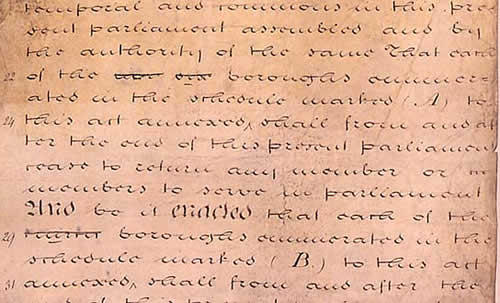 temporal and commons in this pre
sent parliament assembled and by
the authority of the same That each
22 of the six boroughs enumer-
ated in the schedule marked (A) to
24 this act annexed, shall from and af
ter the end of this present Parliament
cease to return any member or
members to serve in parliament
And be it enacted that each of the
29 boroughs enumerated in the
schedule marked (B.) to this act
31 annexed, shall from and after the
end of this present